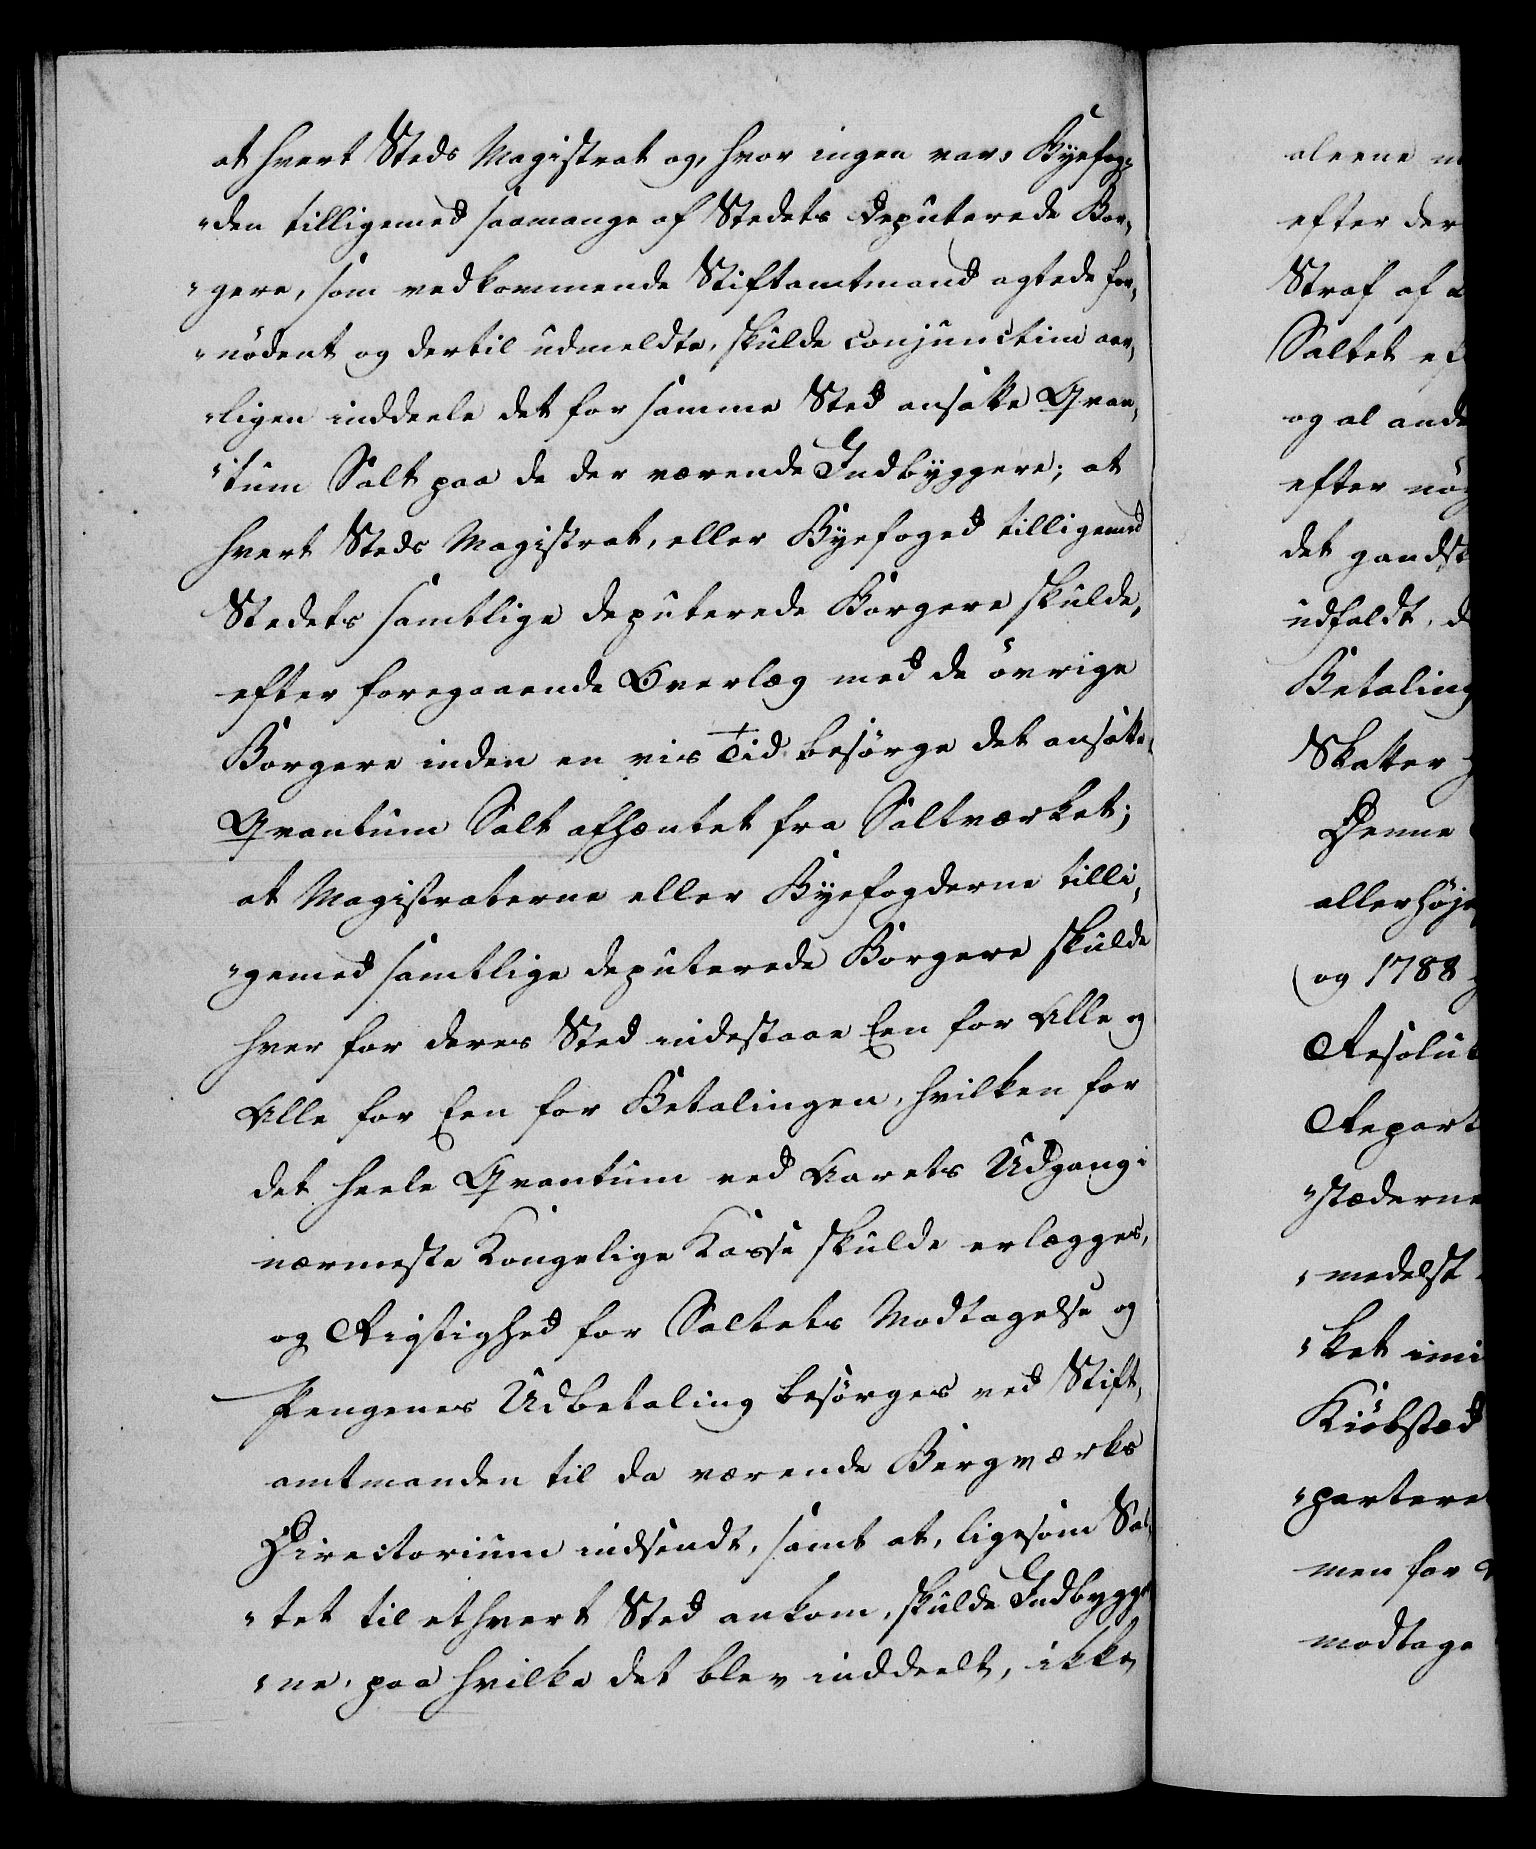 at hvert Steds Magistrat og, hvor ingen var, Byefog-
„den tilligemed saamange af Stedets deputerede Bor„
„gere, som vedkommende Stiftamtmand agtede for„
„nödent og dertil udmeldte, skulde conjunctim aar„
„ligen inddeele det for samme Sted ansatte Qvan„
„tum Salt paa de der værende Indbyggere; at
hvert Steds Magistrat, eller Byefoged tilligemed
Stedets samtlige deputerede Borgere skulde,
efter foregaaende Overlæg med de övrige
Borgere inden en vis Tid besörge det ansatte
Qvantum Salt afhæntet fra Saltværket;
at Magistraterne eller Byefogderne tilli„
„gemed samtlige deputerede Borgere skulde
hver for deres Sted indestaae Een for Alle og
Alle for Een for Betalingen, hvilken for
det heele Qvantum ved Aarets Udgang i
nærmeste Kongelige Kasse skulde erlægges,
og Rigtighed for Saltets Modtagelse og
Pengenes Udbetaling besörges ved Stift„
amtmanden til da værende Bergværks
Directorium indsendt, samt at, ligesom Sal„
„tet til ethvert Sted ankom, skulde Indbygger
„ne, paa hvilke det blev inddeelt, ikke
aleene
efter der
Straf af
Saltet
og al
efter
det
udfaldt,
Betaling
Skatter
Denne
og 1788
„stæderne
„medelst
„ket
Kiöbstæd
men for
modtage